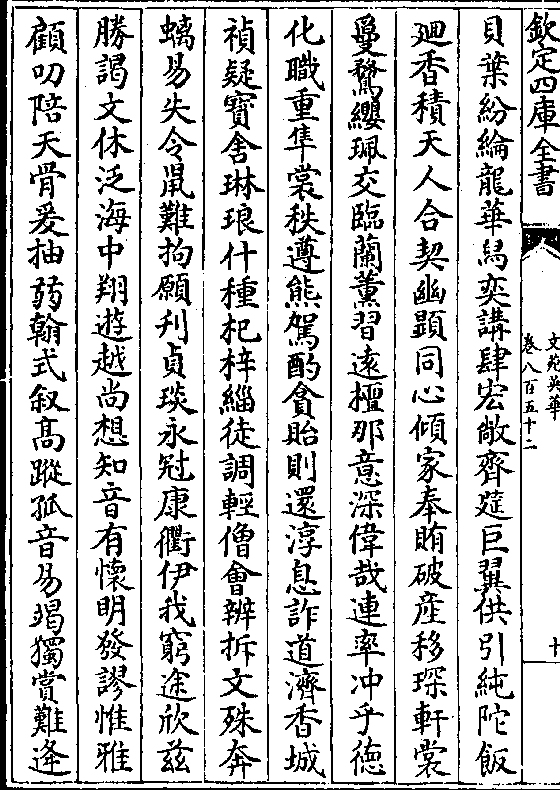 欽定四庫全書
文苑英華
卷八百五十二
十
貝葉紛綸龍華舄奕講肆宏敞齊筵巨翼供引純陀飯
迴香積天人合契幽顯同心傾家奉賄破産移琛軒裳
曼鶩纓珮交臨蘭薰習遠檀那意深偉哉連率冲乎德
化職重隼裳秩遵熊駕酌貪貽則還淳息詐道濟香城
禎疑寳舍琳琅什種杞梓緇徒調輕僧會辨拆文殊奔
螭易失令䑕難拘願刋貞琰永冠康衢伊我窮途欣兹
勝謁文休泛海中翔遊越尚想知音有懷明發謬惟雅
顧叨陪天骨爰抽弱翰式叙髙蹤孤音易竭獨賞難逢